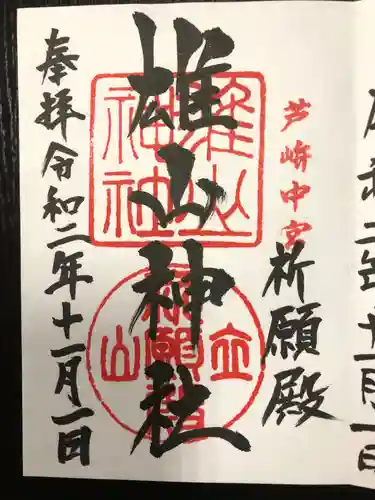 芦峅中宮
祈願殿
雄山神社
奉拝令和二年十一月一日
雄山神社
立山
祈願殿